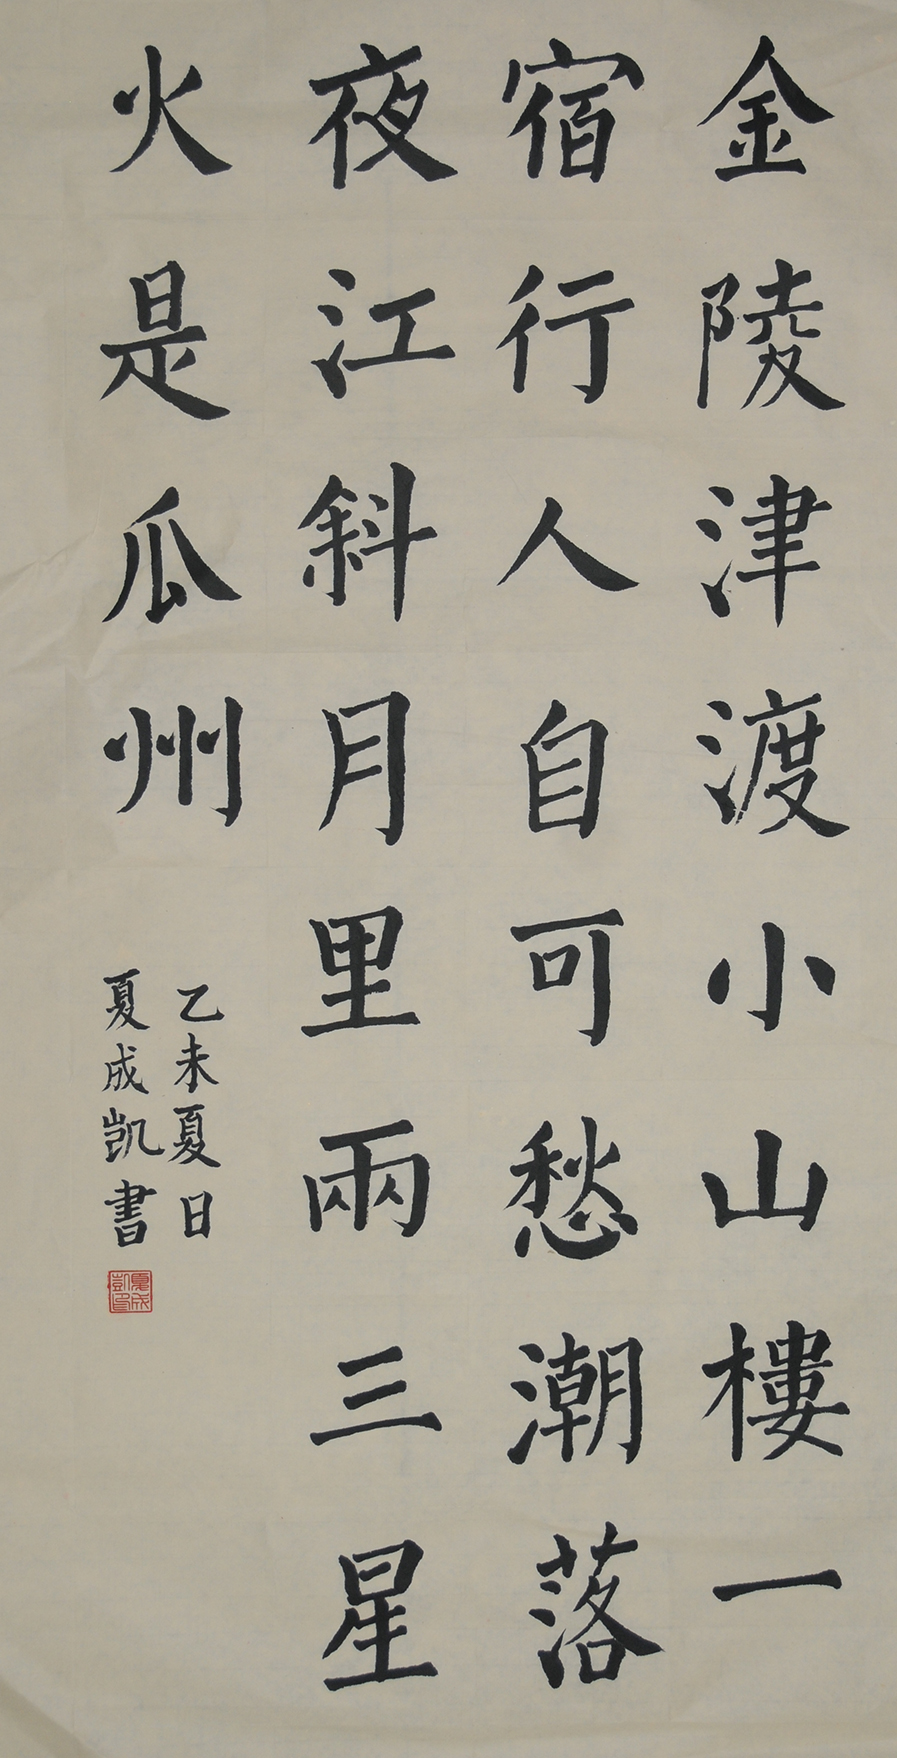 金陵津渡小山樓一
宿行人自可愁潮落
夜江斜月里兩三星
火是瓜州
乙未夏日
夏成凯書
夏成
凱印